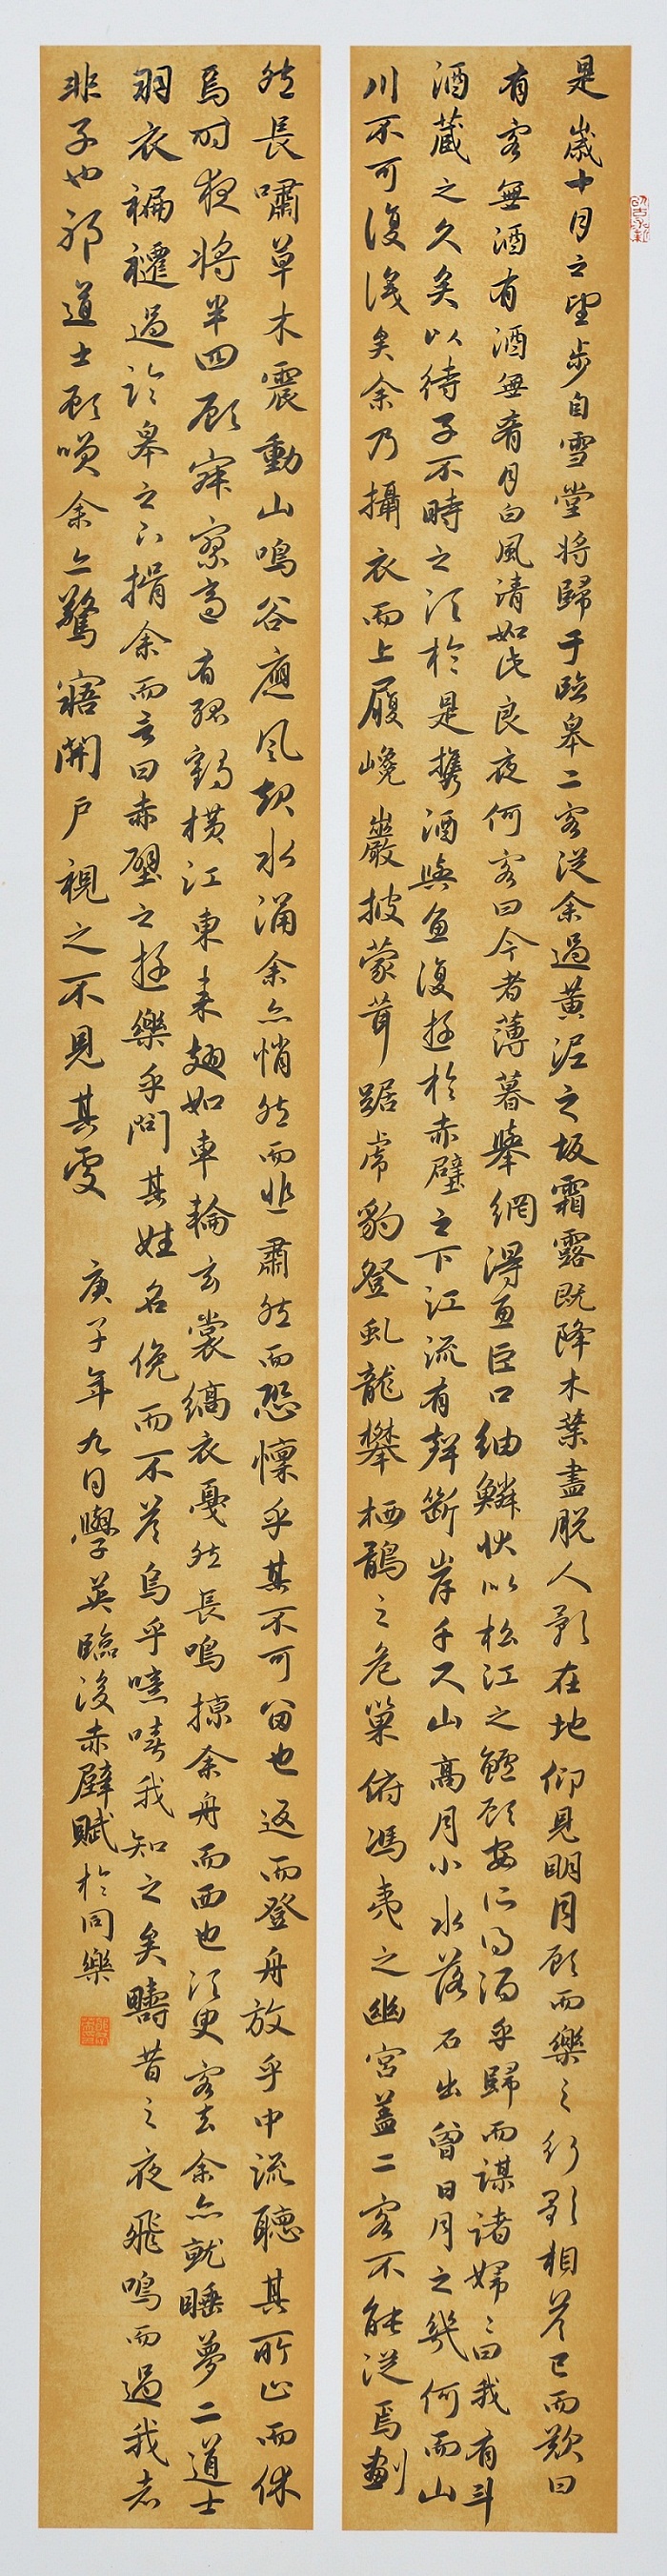 是歲十月之望步自雪堂將歸于臨皋二客從余過黃泥之坂霜露既降木葉盡脫人影在地仰見明月顧而樂之行歌相答已而歎曰
有客無酒有酒無肴月白風清如此良夜何客曰今者薄暮舉網得魚巨口細鱗狀似松江之鱸顧安所得酒乎歸而謀諸婦婦曰我有斗
酒藏之久矣以待子不時之須於是攜酒與魚復遊於赤壁之下江流有聲斷岸千尺山高月小水落石出曾日月之幾何而山
川不可復識矣余乃攝衣而上履巉巖披蒙茸踞虎豹登虬龍攀栖鶻之危巢俯馮夷之幽宮蓋二客不能從焉劃
然長嘯草木震動山鳴谷應風起水涌余亦悄然而悲肅然而恐懍乎其不可留也返而登舟放乎中流聽其所止而休
焉時夜將半四顧寂寥適有孤鶴橫江東來翅如車輪玄裳縞衣戛然長鳴掠余舟而西也須臾客去余亦就睡夢二道士
羽衣褊襹過臨皋之下揖余而言曰赤壁之遊樂乎問其姓名俛而不答烏乎噫嘻我知之矣疇昔之夜飛鳴而過我者
非子也耶道士顧笑余亦驚寤開戶視之不見其處 庚子年九月學英臨後赤壁賦於同樂